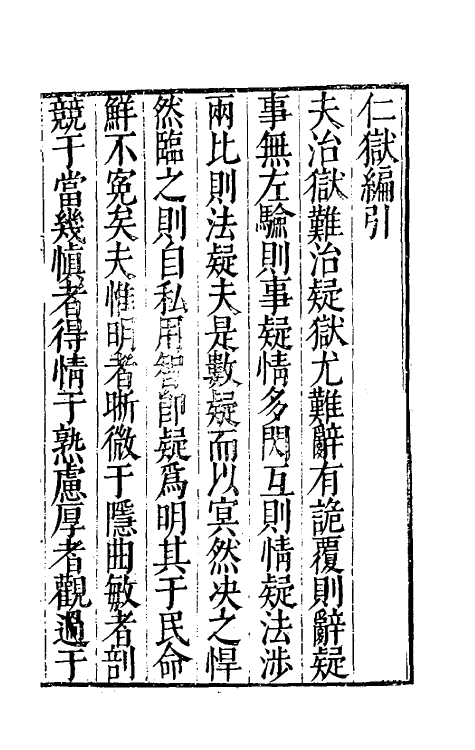 仁獄編引
夫治獄難治疑獄尤難辭有詭覆則辭疑
事無左驗則事疑情多閃互則情疑法涉
兩比則法疑夫是數疑而以冥然决之悍
然臨之則自私用智卽疑爲明其于民命
鮮不寃矣夫惟明者晰微于隱曲敏者剖
競于當幾慎者得情于熟慮厚者觀過于